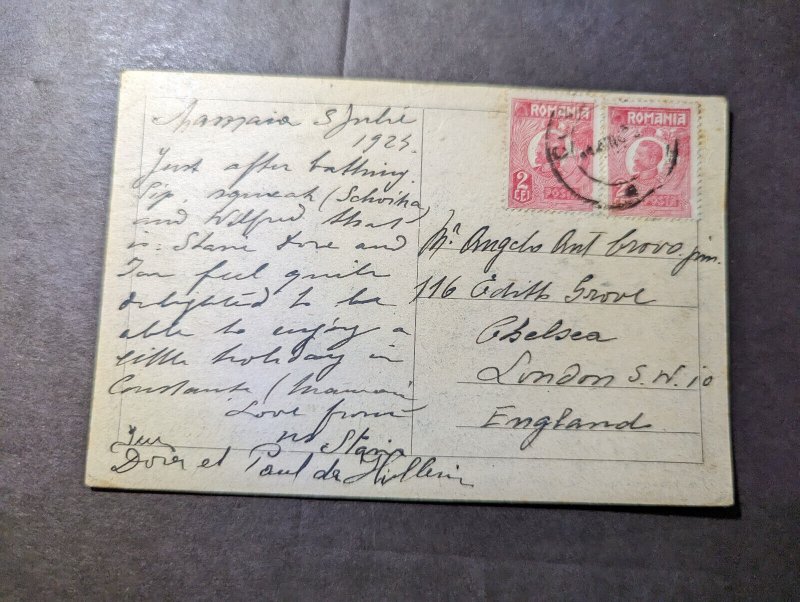 Mamaia 5 Julie
1925.
Just after bathing.
Pip, squeak (Schoitka)
and Wilfred that
is. Stane Dore and
I am feel quite
delighted to be
able to enjoy a
little holiday in
Constantz (Mamaia
Love from
Stane
Dore et Paul de
ROMANIA
ROMANIA
2
LEI
POSTA
2
POSTA
Mr. Angelo Ant Crova. jun.
116 Edith Grove
Chelsea
London S.W. 10
England